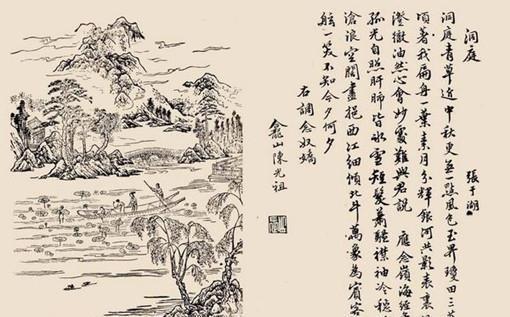 洞庭
張于湖
洞庭青草近中秋更無一點風色玉界瓊田三萬
頃著我扁舟一葉素月分輝銀河共影表裏
澄徹油然心會妙處難與君說 應念嶺海經
孤光自照肝肺皆冰雪短髮蕭騷襟袖冷穩
滄浪空闊盡挹西江細傾北斗萬象為賓客
舷一笑不知今夕何夕
右調念奴嬌
山陳光祖